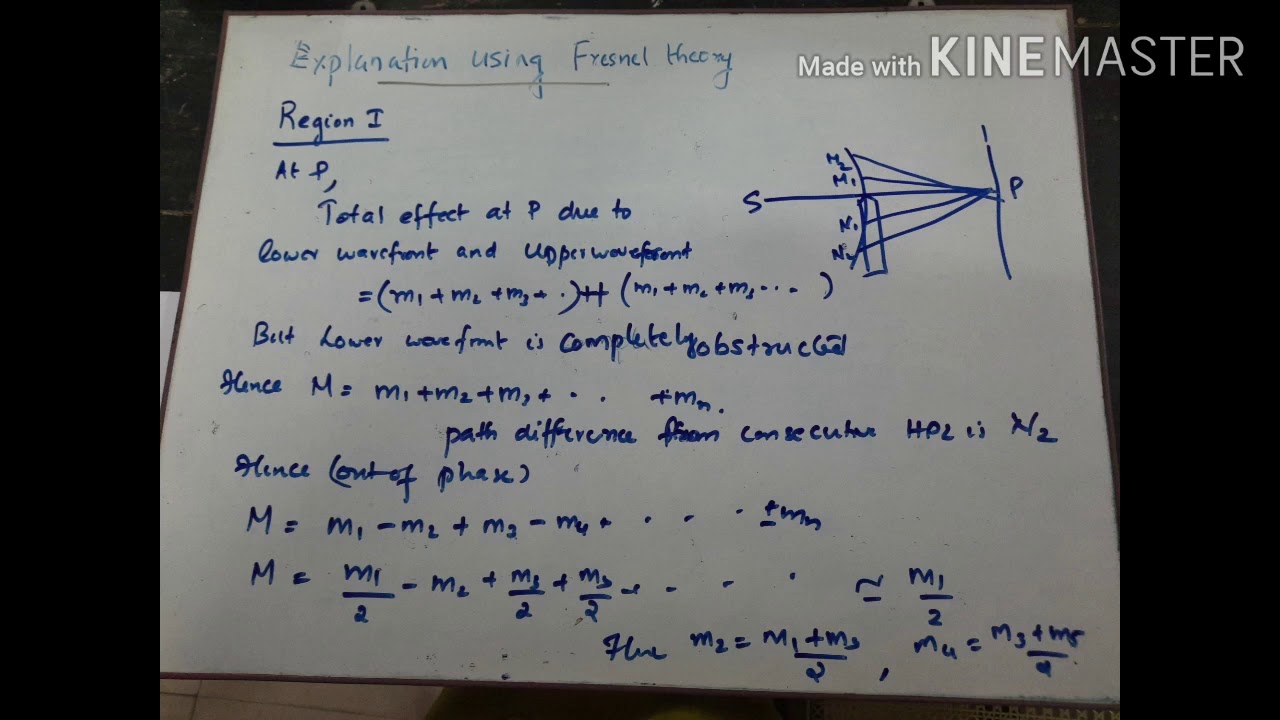 Explanation using Fresnel theory
Made with KINEMASTER
Region I
At P,
Total effect at P due to
lower wavefront and Upper wavefront
= (m₁ + m₂ + m₃ + ·) + (m₁ + m₂ + m₃ · · · )
But Lower wavefront is completely obstructed
Hence M = m₁ + m₂ + m₃ + · · +mₙ.
path difference from consecutive HPZ is λ/2
Hence (out of phase)
M = m₁ − m₂ + m₃ − m₄ + · · · ± mₙ
M = m₁/2 − m₂ + m₃/2 + m₃/2 − · · · ≃ m₁/2
m₂ = (m₁ + m₃)/2 , m₄ = (m₃ + m₅)/2
M₂
M₁
S
P
N₁
N₂